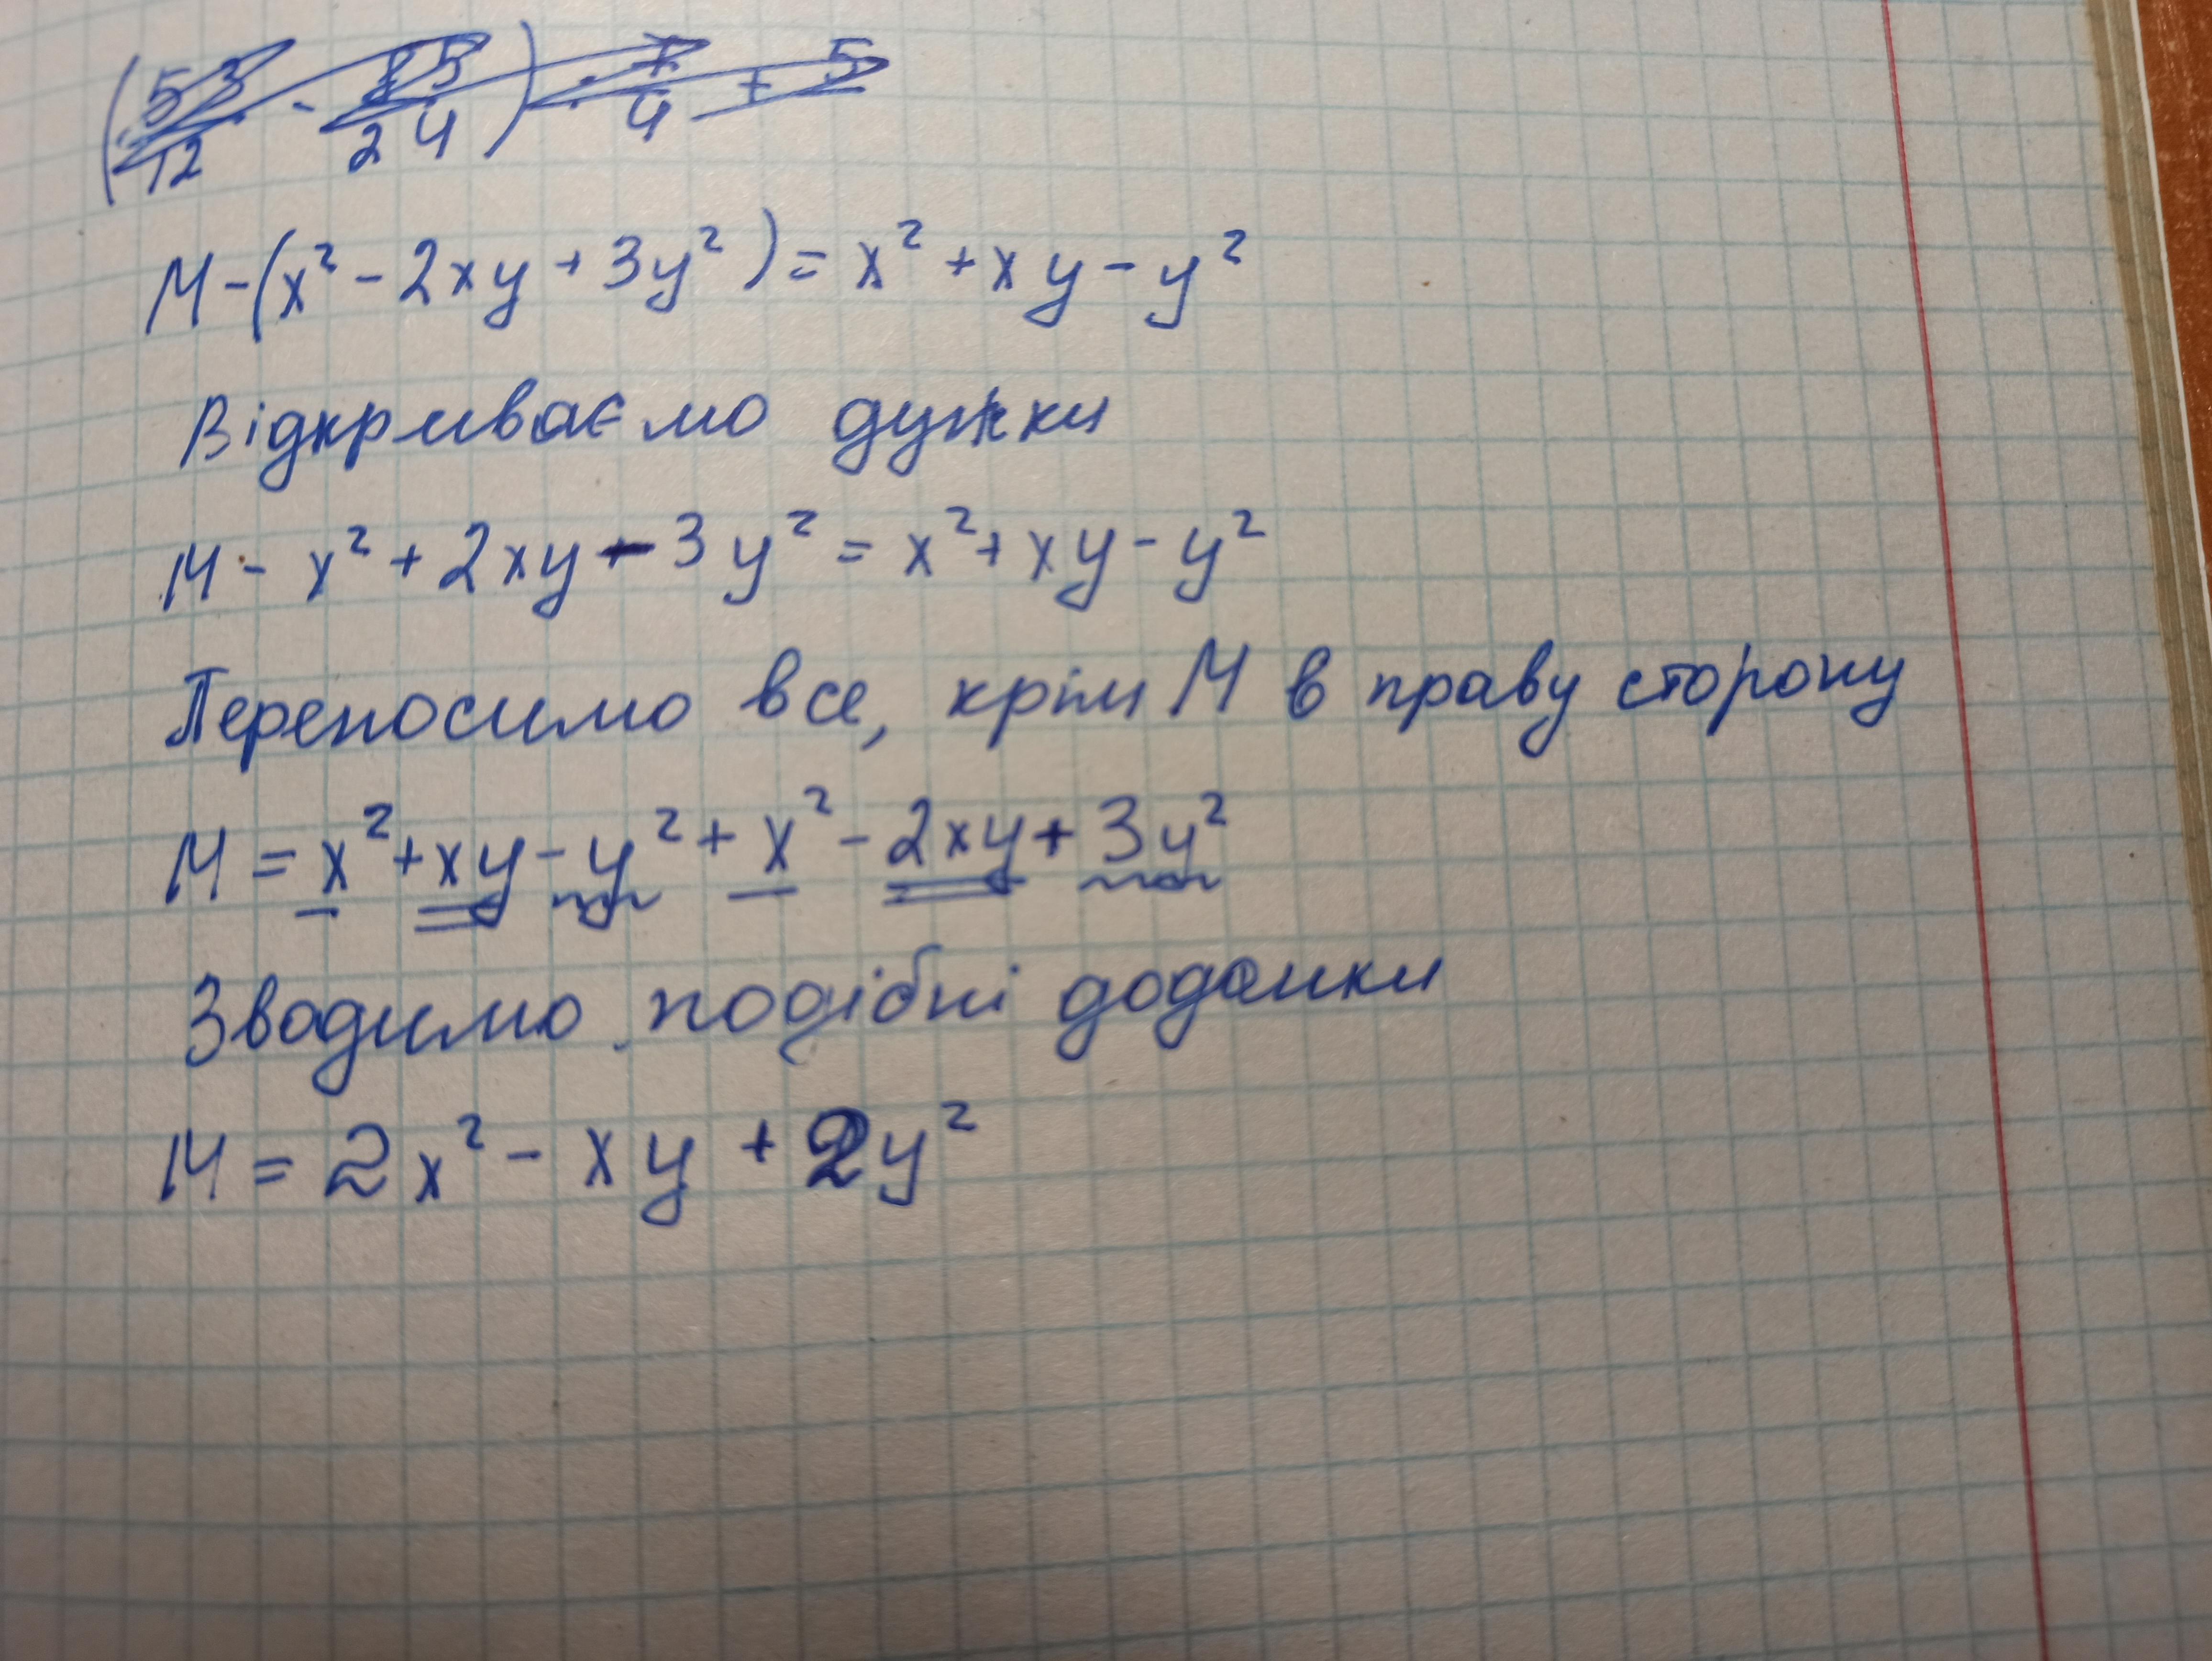 M-(x²-2xy+3y²)=x²+xy-y²
Відкриваємо дужки
M-x²+2xy-3y²=x²+xy-y²
Переносимо все, крім M в праву сторону
M=x²+xy-y²+x²-2xy+3y²
Зводимо подібні доданки
M=2x²-xy+2y²